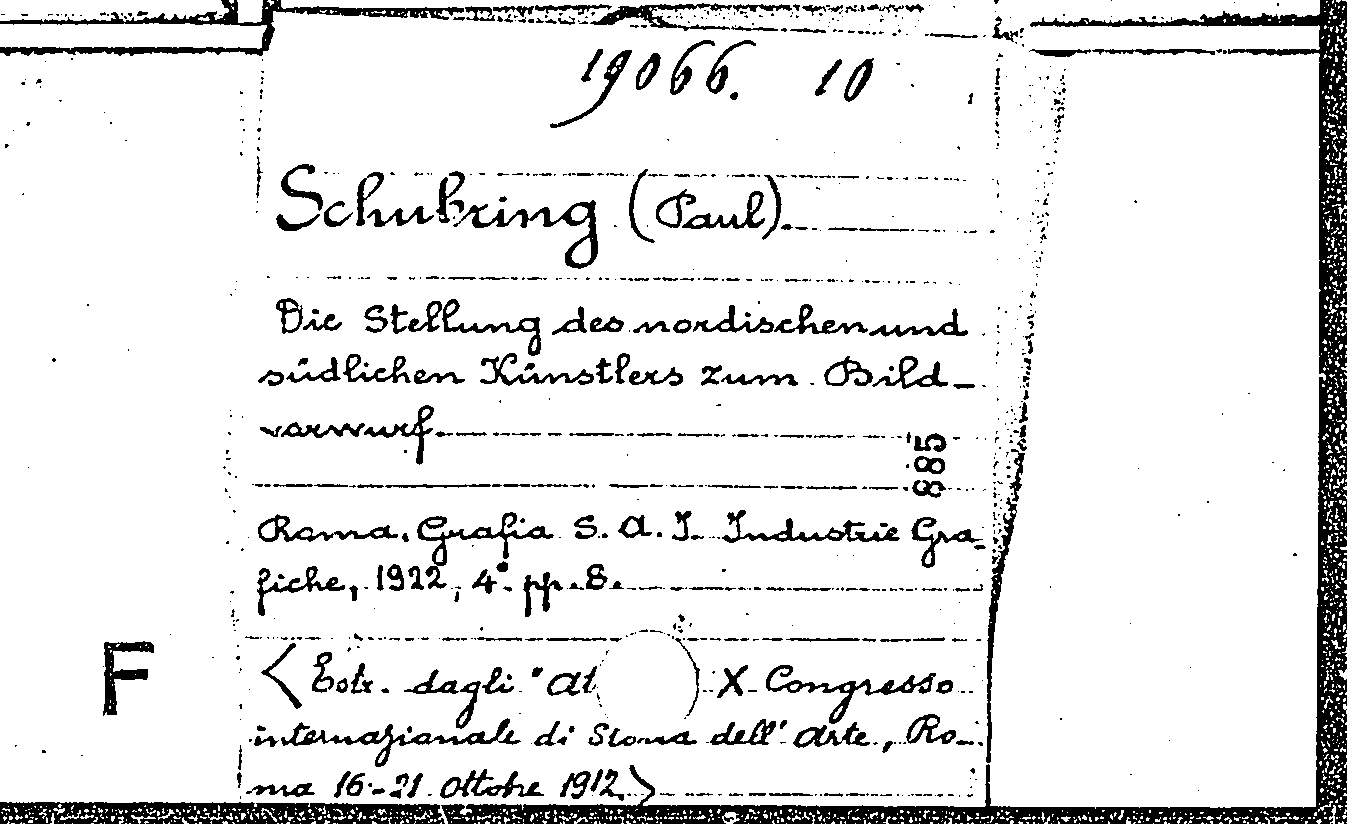 19066. 10
Schubring (Paul).
Die Stellung des nordischen und
südlichen Künstlers zum Bild-
vorwurf.
885
Roma, Grafia S. A. I. Industrie Gra-
fiche, 1922, 4° pp. 8.
F
<Estr. dagli "At X Congresso
internazionale di Storia dell' Arte, Ro-
ma 16-21 Ottobre 1912>